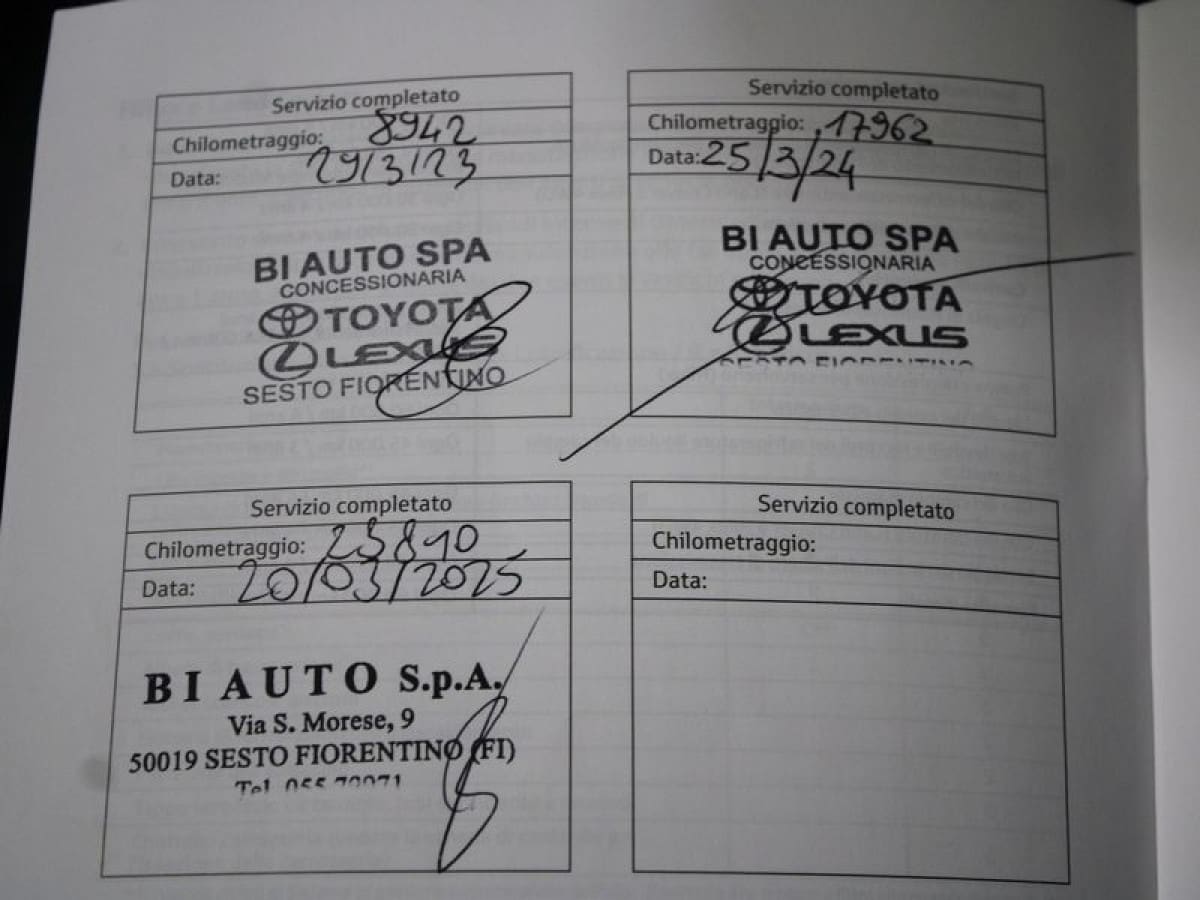 Servizio completato
Chilometraggio: 8942
Data: 29/3/23
BI AUTO SPA
CONCESSIONARIA
TOYOTA
LEXUS
SESTO FIORENTINO
Servizio completato
Chilometraggio: 17962
Data: 25/3/24
BI AUTO SPA
CONCESSIONARIA
TOYOTA
LEXUS
SESTO FIORENTINO
Servizio completato
Chilometraggio: 23890
Data: 20/03/2025
BI AUTO S.p.A.
Via S. Morese, 9
50019 SESTO FIORENTINO (FI)
Tel.
Servizio completato
Chilometraggio:
Data: